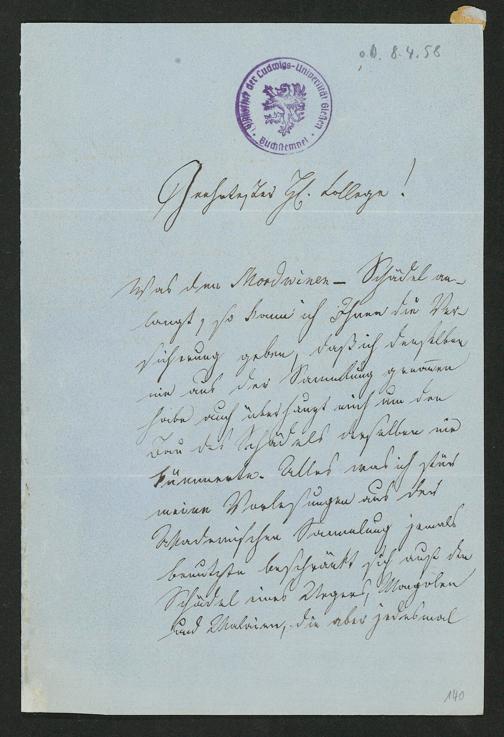 o.D. 8.4.58
Bibliothek der Ludwigs-Universität Gießen
Buchstempel
Geehrtester H. College!
Was den Mordwinen-Schädel an-
langt, so kann ich Ihnen die Ver-
sicherung geben, daß ich denselben
nie aus der Sammlung genommen
habe auch überhaupt mich um den
Bau des Schädels derselben nie
kümmerte. Alles was ich für
meine Vorlesungen aus der
Akademischen Sammlung jemals
benutzte beschränkt sich auf den
Schädel eines Negers, Mongolen
und Malaien, die aber jedesmal
140